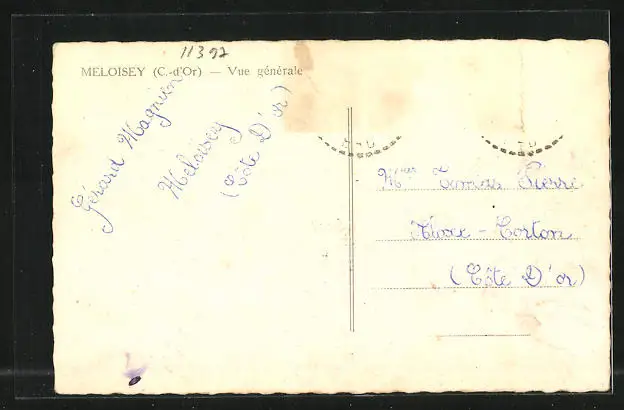 11392
MELOISEY (C.-d'Or) — Vue générale
Gérard Magnien
Meloisey
(Côte D'or)
Pierre
- Corton
(Côte D'or)